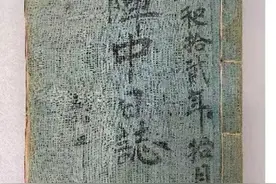 和拾貳年拾月
陣中日誌